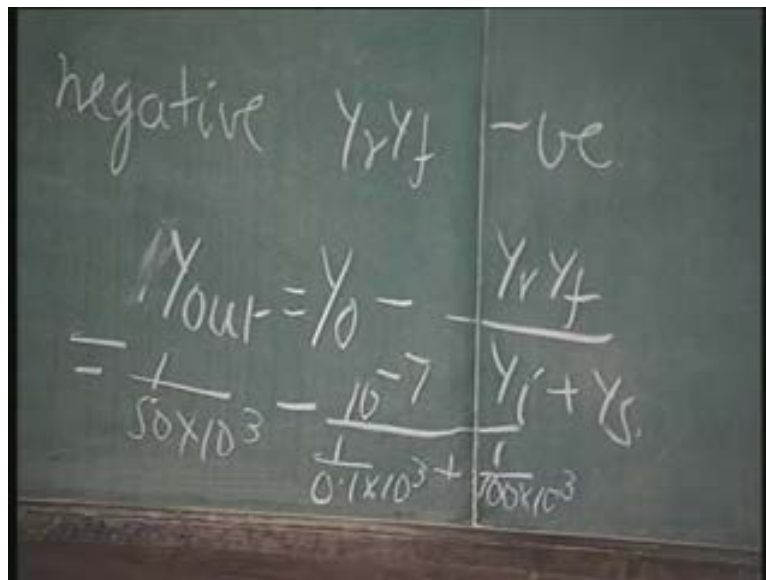 negative YrYf -ve
Yout = Yo - YrYf / Yi + Ys.
= 1 / 50×10³ - 10⁻⁷ / 1 / 0.1×10³ + 1 / 100×10³